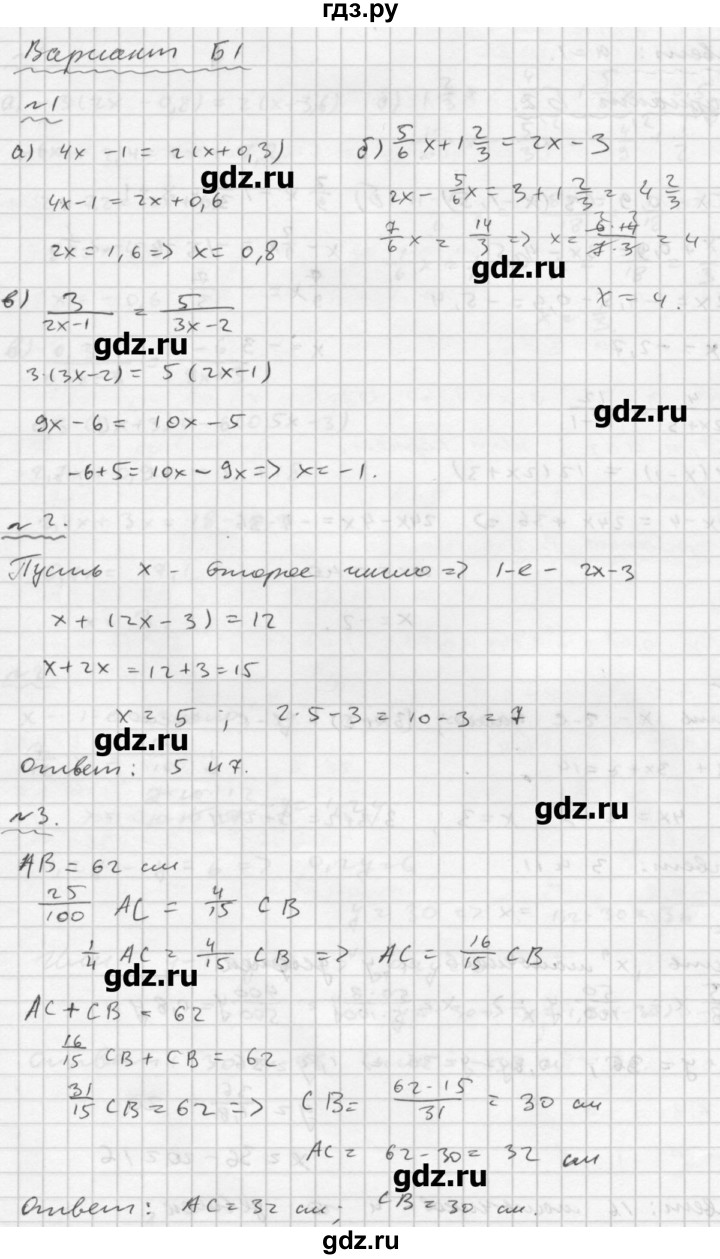 гдз.ру
Вариант Б1
№1
а) 4x - 1 = 2(x+0,3)
4x-1 = 2x+0,6
2x = 1,6 => x = 0,8
б) 5/6 x + 1 2/3 = 2x - 3
2x - 5/6 x = 3 + 1 2/3 = 4 2/3
7/6 x = 14/3 => x = 6·14/7·3 = 4.
x = 4.
gdz.ru
gdz.ru
в) 3/(2x-1) = 5/(3x-2)
gdz.ru
3·(3x-2) = 5(2x-1)
gdz.ru
9x - 6 = 10x - 5
-6+5 = 10x - 9x => x = -1.
№2.
Пусть x - второе число => 1-е - 2x-3
x + (2x - 3) = 12
x + 2x = 12+3 = 15
x = 5 ; 2·5-3 = 10-3 = 7
gdz.ru
Ответ: 5 и 7.
gdz.ru
№3.
AB = 62 см
25/100 AC = 4/15 CB
1/4 AC = 4/15 CB => AC = 16/15 CB
gdz.ru
AC + CB = 62
16/15 CB + CB = 62
31/15 CB = 62 => CB = 62·15/31 = 30 см
AC = 62-30 = 32 см
gdz.ru
Ответ: AC = 32 см; CB = 30 см.
гдз.ру